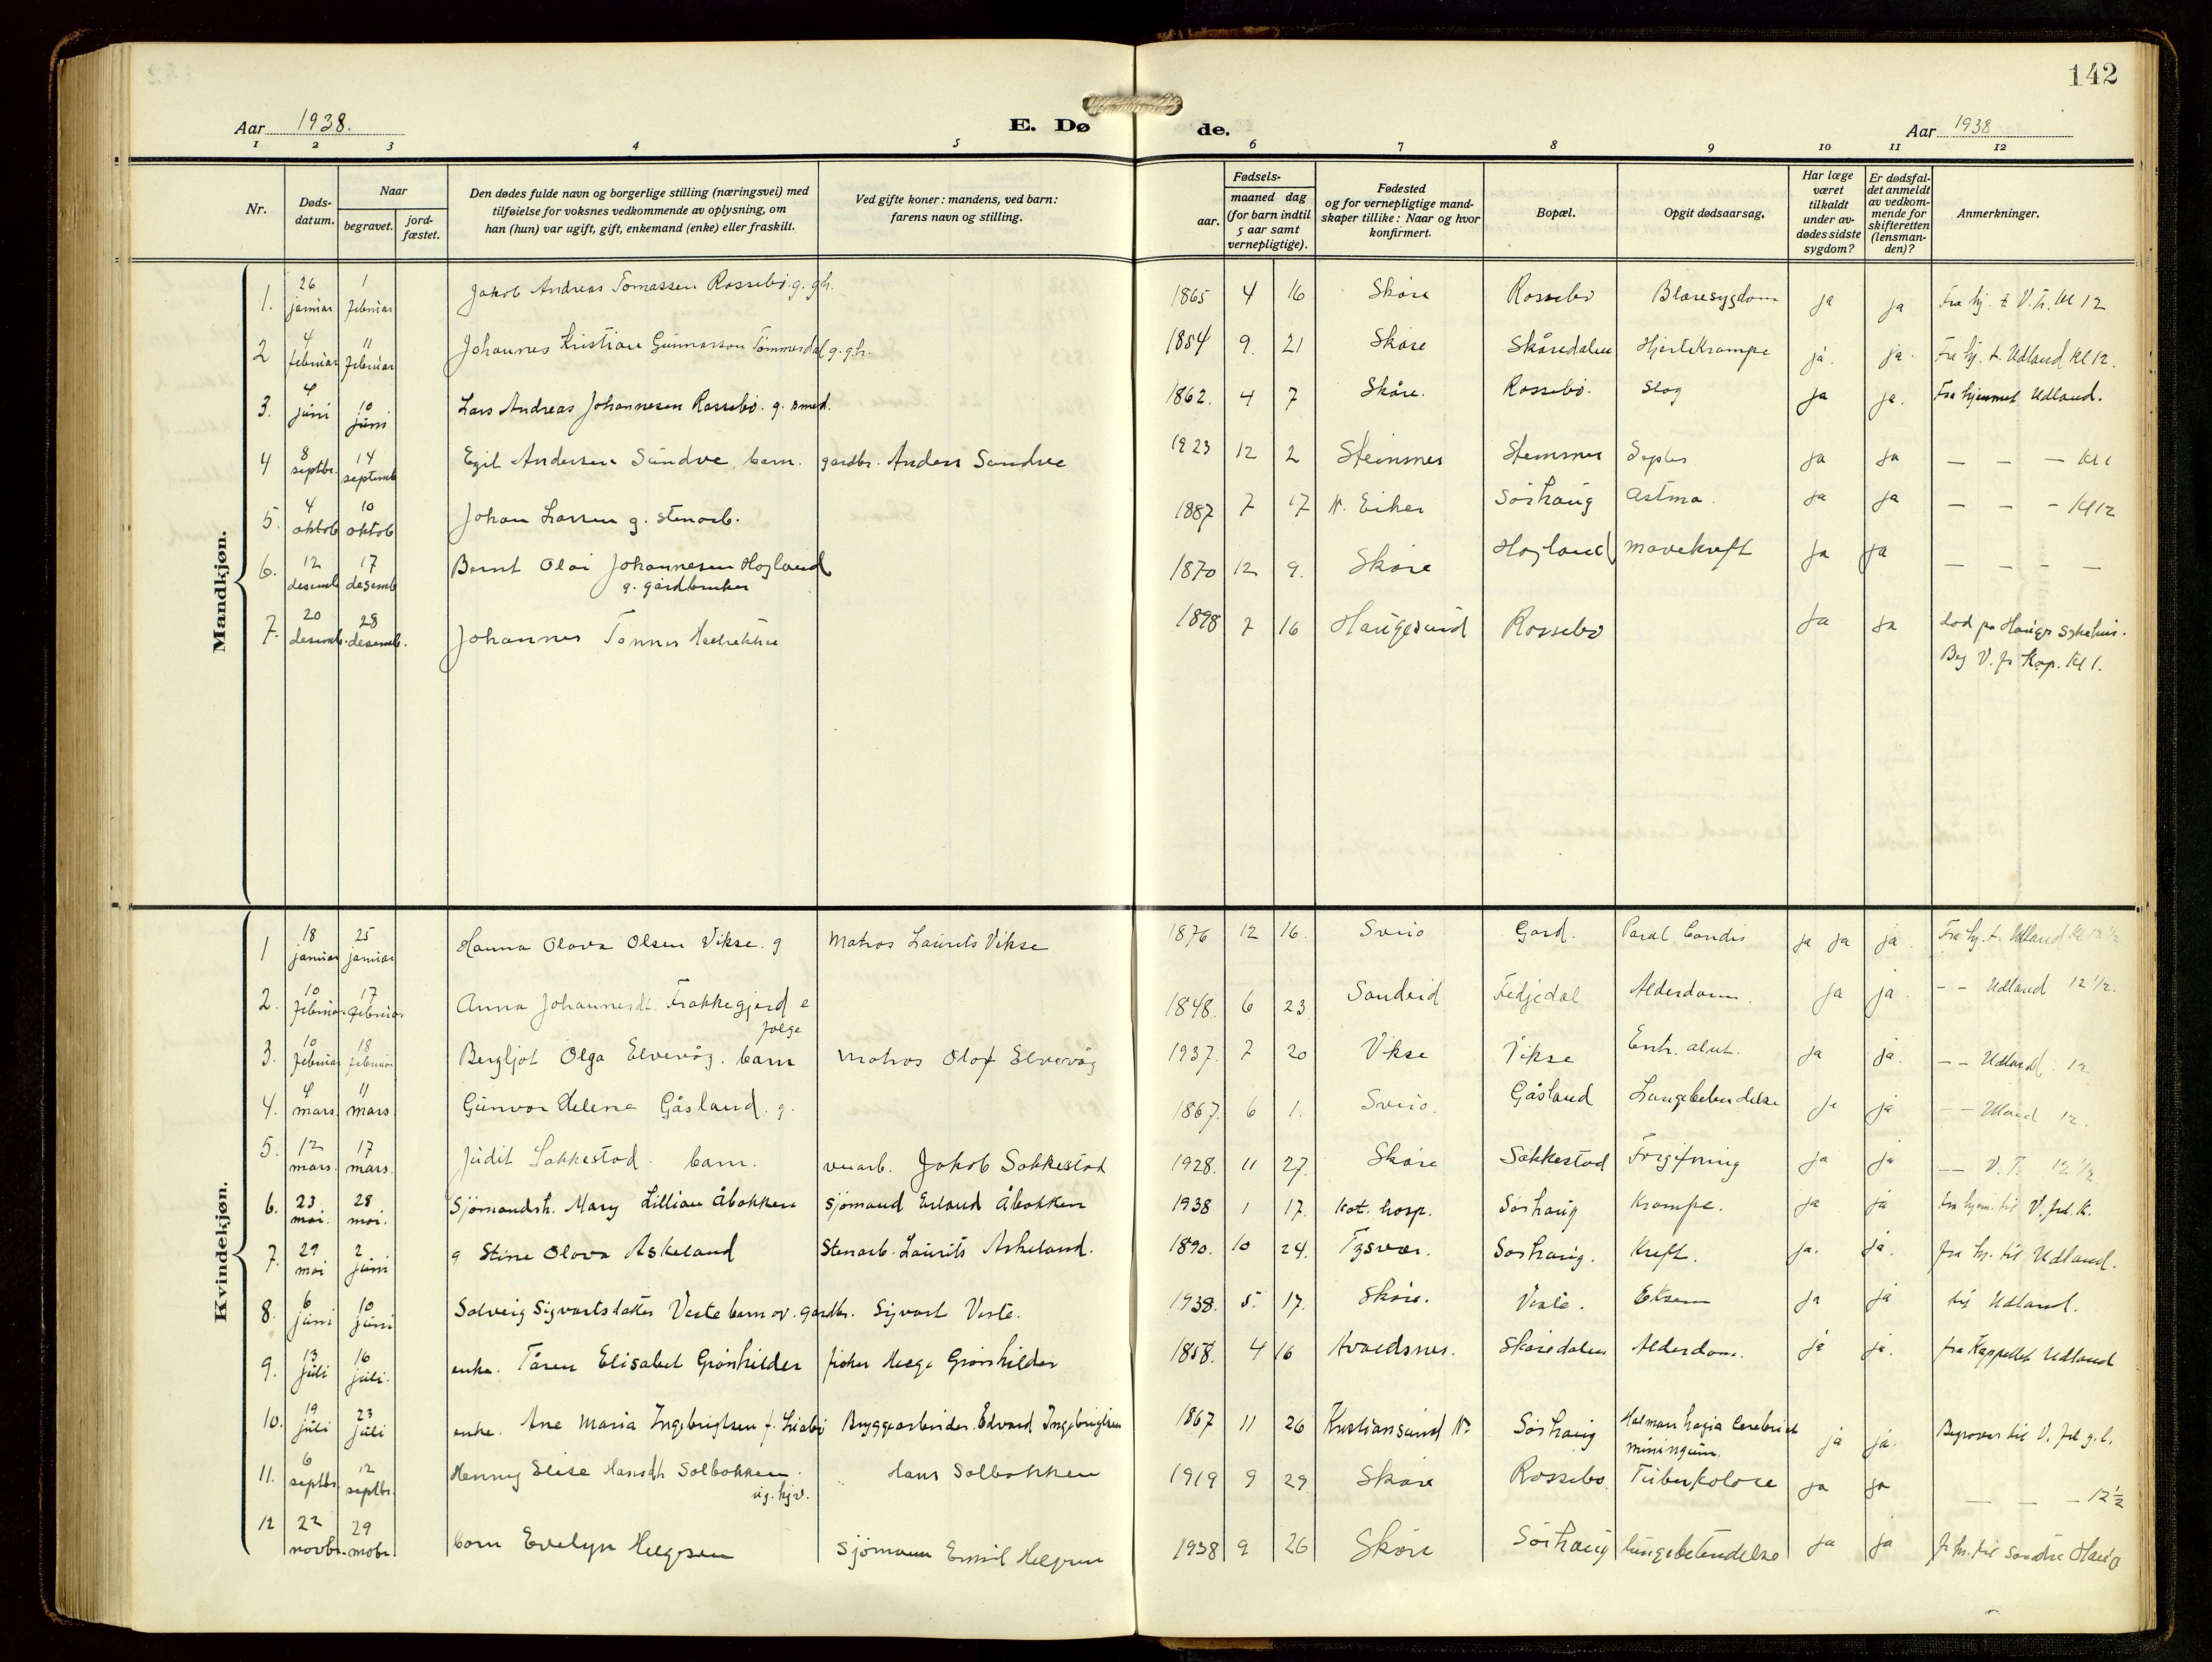 142
Aar 1938.
E. Døde.
Aar 1938
1 2 3 4 5 6 7 8 9 10 11 12
Nr.
Døds-datum.
Naar
begravet.
jord-fæstet.
Den dødes fulde navn og borgerlige stilling (næringsvei) med
tilføielse for voksnes vedkommende av oplysning, om
han (hun) var ugift, gift, enkemand (enke) eller fraskilt.
Ved gifte koner: mandens, ved barn:
farens navn og stilling.
Fødsels-
aar.
maaned dag
(for barn indtil
5 aar samt
vernepligtige).
Fødested
og for vernepligtige mand-
skaper tillike: Naar og hvor
konfirmert.
Bopæl.
Opgit dødsaarsag.
Har læge
været
tilkaldt
under av-
dødes sidste
sygdom?
Er dødsfal-
det anmeldt
av vedkom-
mende for
skifteretten
(lensman-
den)?
Anmerkninger.
Mandkjøn.
1. 26 januar 1 februar Jakob Andreas Tomassen Rossebø. g. gh. 1865 4 16 Skåre Rossebø Blæresygdom ja ja Fra hj. t. V. fr. kl 12
2 4 februar 11 februar Johannes Kristian Gunnarson Tømmerdal g. g.h. 1854 9. 21 Skåre Skåredalen Hjertekrampe ja. ja. Fra hj. t. Udland kl 12.
3. 4 juni 10 juni Lars Andreas Johannesen Rossebø. g. smed. 1862. 4 7 Skåre. Rossebø. Slag ja ja. Fra hjemmet Udland.
4 8 septbr. 14 septemb Egil Andersen Sundve, barn. gardbr. Anders Sundve 1923 12 2 Steinsnes Steinsnes ja ja — — — kl 1
5. 4 oktob 10 oktob Johan Larsen g. stenarb. 1887 7 17 N. Eiker Sørhaug Astma. ja ja — — - kl 12
6. 12 desemb 17 desemb Bernt Olai Johannesen Hogland
g. gårdbruker 1870 12 9. Skåre Hogland mavekreft ja ja — — — —
7. 20 desemb. 28 desemb. Johannes Tønnes 1898 7 16 Haugesund Rossebø ja ja død på Haugs sykehus.
Beg V. fr Kap. kl 1.
Kvindekjøn.
1 18 januar 25 januar Hanna Olava Olsen Vikse. g Matros Laurits Vikse 1876 12 16. Sveio Gard. Paral Cordis ja ja ja. Fra hj. t. Udland kl 12 1/2
2. 10 februar 17 februar Anna Johannesdt. Frakkagjerd e
følge 1848. 6 23 Sandeid Fedjedal Alderdom. ja ja. - - Udland 12 1/2.
3. 10 februar 18 februar Bergljot Olga Elvevåg. barn Matros Olaf Elvevåg 1937. 7 20 Vikse Vikse Entr. akut. ja ja. - - Udland 12
4. 4 mars 11 mars Gunvor Helena Gåsland. g. 1867. 6 1. Sveio. Gåsland Lungebetendelse ja ja - - Udland 12.
5. 12 mars. 17 mars. Judit Sakkestad. barn. veiarb. Jakob Sakkestad 1928. 11 27. Skåre Sakkestad Forgiftning ja ja - - V. F. 12 1/2
6. 23 mai. 28 mai. Sjømandsh. Mary Lillian Åbakken Sjømand Erland Åbakken 1938 1 17. Kat. hosp. Sørhaug Krampe. ja ja fra hjem. til V. frd. k.
7. 29 mai 2 juni g Stine Olava Askeland Stenarb. Laurits Askeland. 1890. 10 24. Tysvær. Sørhaug. Kreft. ja. ja. fra hj. til Udland.
8. 6 juni 10 juni Solveig Sigvartsdatter Veste barn av. gardbr. Sigvart Veste. 1938. 5. 17. Skåre. Veste. Eksem ja ja til Udland.
9. 13 juli 16 juli. enke. Tåren Elisabet Grønhilder fisker Helge Grønhilder 1858. 4 16 Avaldsnes. Skåredalen Alderdom. ja ja. fra Kappellet Udland
10. 19 juli 23 juli enke. Ane Maria Ingebrigtsen f. Bryggearbeider. Edvard Ingebrigtsen 1867 11 26 Kristiansund N. Sørhaug ja ja. Begraves til V. frd g.l.
11. 6 septbr. 12 septbr. Henny Elise Hansdtr Solbakken.
ug. hjv. Hans Solbakken 1919 9 29 Skåre Rossebø. Tuberkolose ja ja — — - 12 1/2
12 22 novbr. 29 nobr. barn Evelyn Helgesen Sjømann Emil Helgesen 1938 9 26 Skåre Sørhaug lungebetendelse ja ja